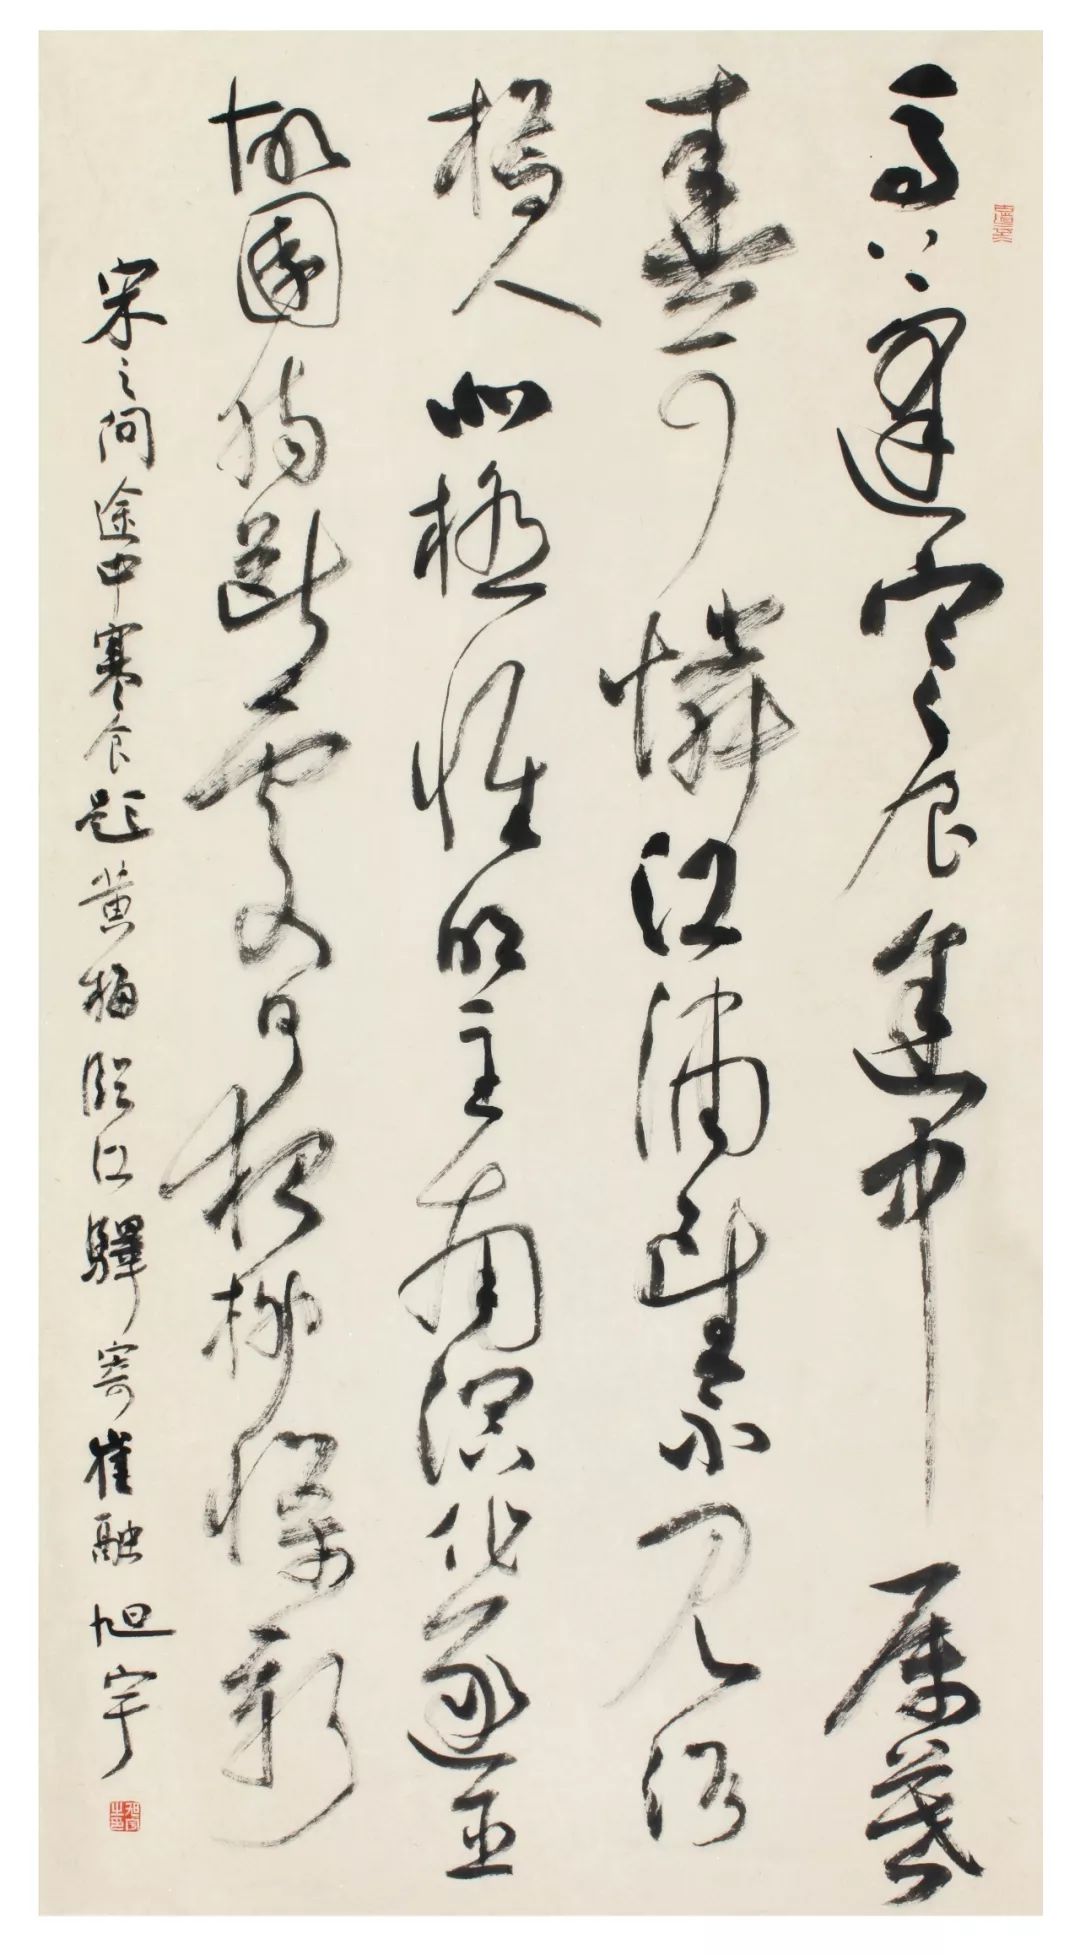 馬上逢寒食途中属暮
春可憐江浦望不見洛
橋人北極懷明主南溟作逐臣
故園腸斷處日夜柳條新
宋之問途中寒食題黄梅臨江驛寄崔融 旭宇
旭宇之印